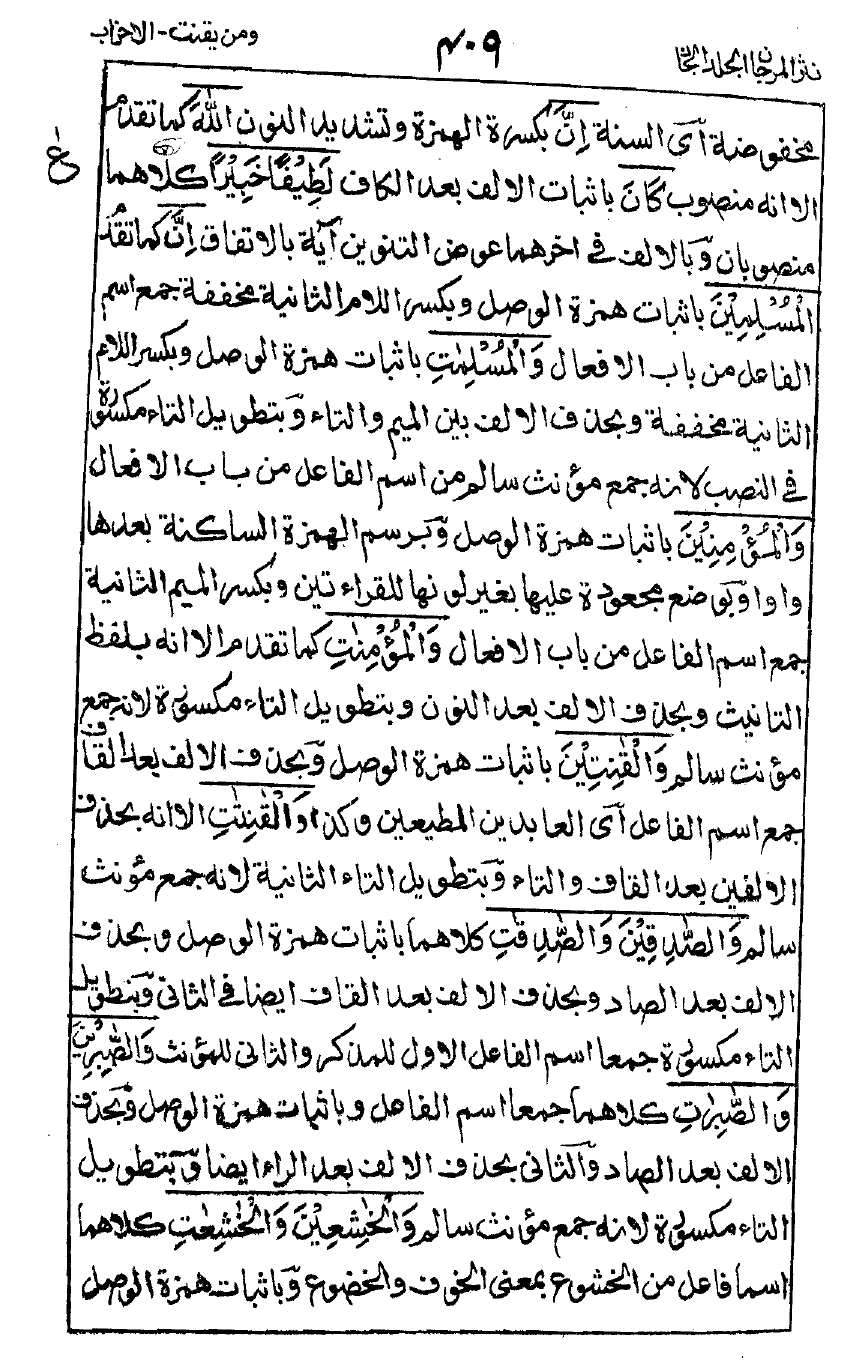 نثر المرجان الجلد الخامس
٤٠٩
ومن يقنت - الاحزاب
مخفوضة آى السنة اِنَّ بكسرة الهمزة وتشديد النون اللّٰهَ كما تقدم
ع
الا انه منصوب كَانَ باثبات الالف بعد الكاف لَطِيْفًا خَبِيْرًا كلاهما
منصوبان وبالالف فى اخرهما عوض التنوين آية بالاتفاق اِنَّ كما تقدم
الْمُسْلِمِيْنَ باثبات همزة الوصل وبكسر اللام الثانية مخففة جمع اسم
الفاعل من باب الافعال وَالْمُسْلِمٰتِ باثبات همزة الوصل وبكسر اللام
الثانية مخففة وبحذف الالف بين الميم والتاء وبتطويل التاء مكسورة
فى النصب لانه جمع مؤنث سالم من اسم الفاعل من باب الافعال
وَالْمُؤْمِنِيْنَ باثبات همزة الوصل وبرسم الهمزة الساكنة بعدها
واوا وبوضع مجعودة عليها بغير لونها للقراءتين وبكسر الميم الثانية
جمع اسم الفاعل من باب الافعال وَالْمُؤْمِنٰتِ كما تقدم الا انه بلفظ
التانيث وبحذف الالف بعد النون وبتطويل التاء مكسورة لانه جمع
مؤنث سالم وَالْقٰنِتِيْنَ باثبات همزة الوصل وبحذف الالف بعد القاف
جمع اسم الفاعل آى العابدين المطيعين وكذا وَالْقٰنِتٰتِ الا انه بحذف
الالفين بعد القاف والتاء وبتطويل التاء الثانية لانه جمع مؤنث
سالم وَالصّٰدِقِيْنَ وَالصّٰدِقٰتِ كلاهما باثبات همزة الوصل وبحذف
الالف بعد الصاد وبحذف الالف بعد القاف ايضا فى الثانى وبتطويل
التاء مكسورة جمعا اسم الفاعل الاول للمذكر والثانى للمؤنث وَالصّٰبِرِيْنَ
وَالصّٰبِرٰتِ كلاهما جمعا اسم الفاعل وباثبات همزة الوصل وبحذف
الالف بعد الصاد والثانى بحذف الالف بعد الراء ايضا وبتطويل
التاء مكسورة لانه جمع مؤنث سالم وَالْخٰشِعِيْنَ وَالْخٰشِعٰتِ كلاهما
اسما فاعل من الخشوع بمعنى الخوف والخضوع وباثبات همزة الوصل